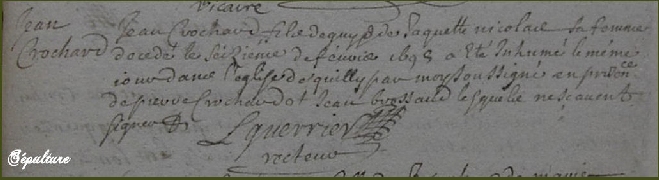 vicaire
Jean Jean Crochard fils de guy & de paquette nicolas sa femme
Crochard decedé le seizieme de feuvrier 1698 a eté Inhumé le même
iour dans l'eglise de quilly par moy soussigné en presence
de pierre Crochard et Jean brossaud lesquels ne scavent
signer
L guerrier
recteur
Sépulture